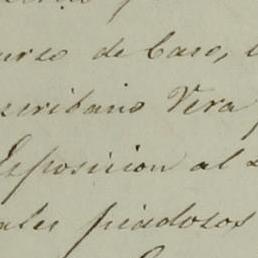 urso de Caso,
scribano Vera
Esposicion al
ales piadosos